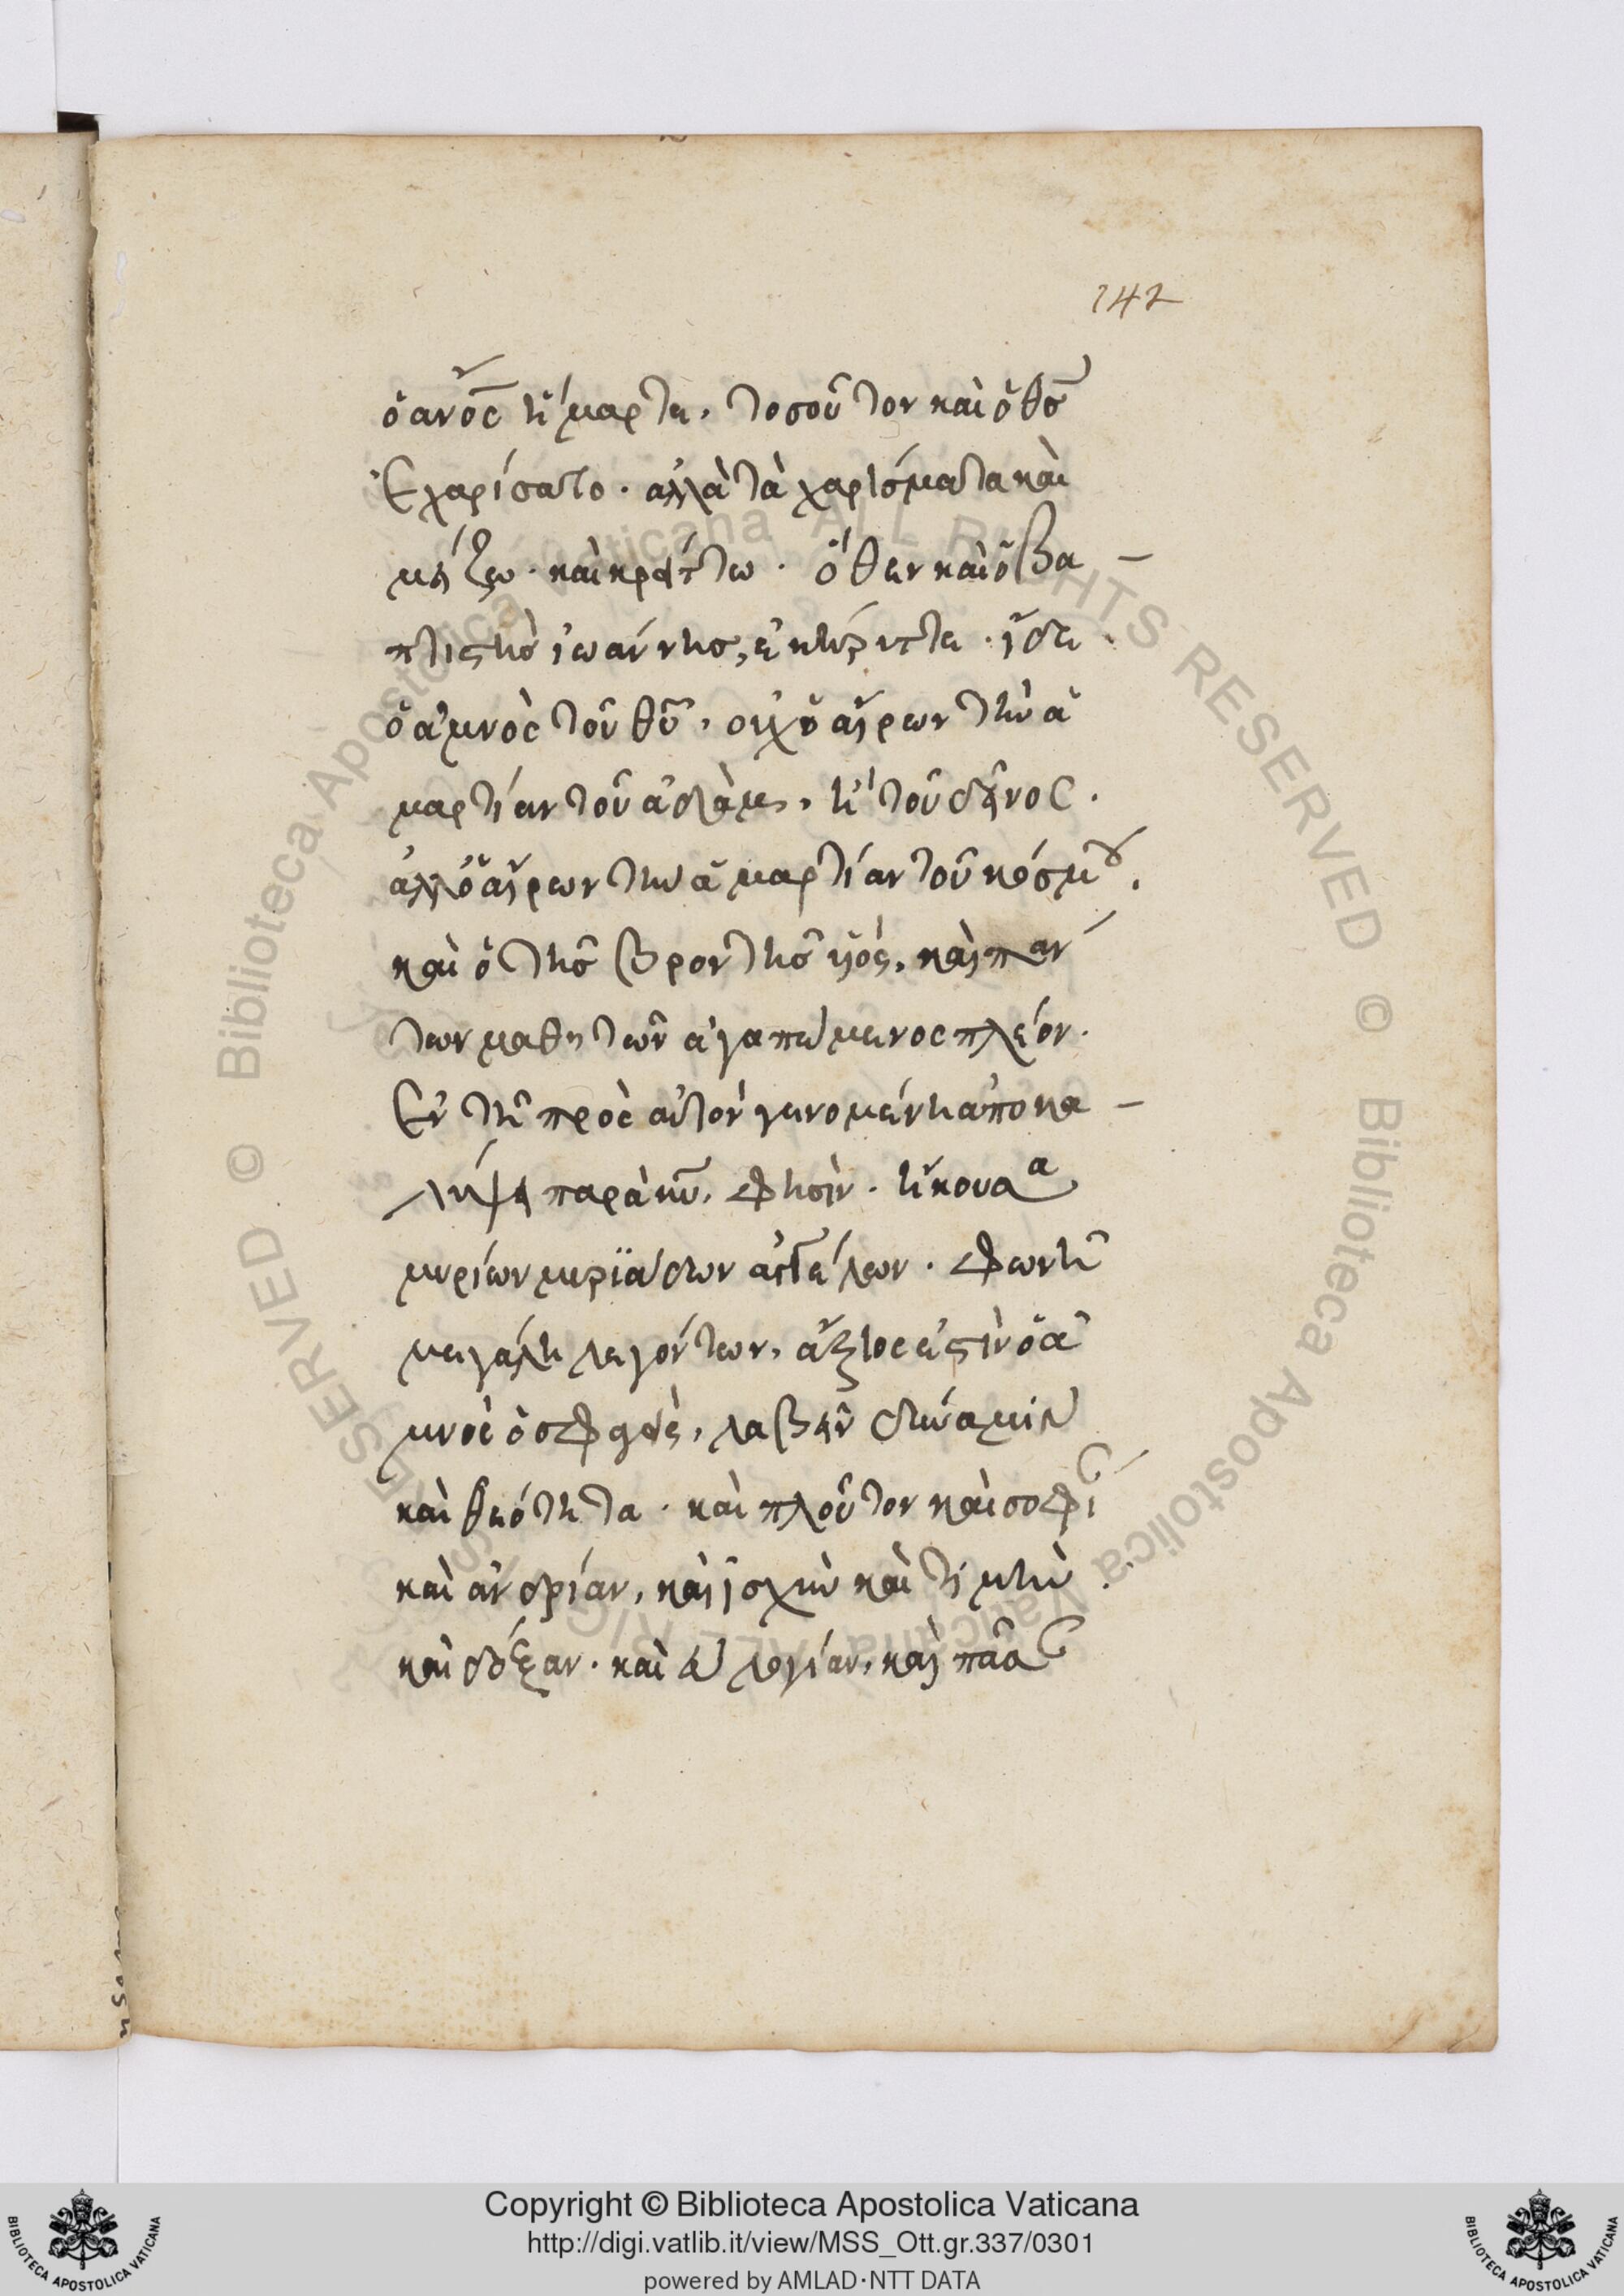 142
ὁ ἄνος ἥμαρτε, τοσοῦτον καὶ ὁ θσ
ἐχαρίσατο· ἀλλὰ τὰ χαρίσματα καὶ
μείζω· καὶ κρείττω· ὅθεν καὶ ὁ βα
πτιστὴσ ἰωάννησ, ἐκήρυττε· ἴδε
ὁ ἀμνὸς τοῦ θῦ, οὐχ ὁ αἴρων τὴν ἁ
μαρτίαν τοῦ ἀδὰμ, ἢ τοῦ δεῖνος·
ἀλλ' ὁ αἴρων τὴν ἁμαρτίαν τοῦ κόσμου,
καὶ ὁ τῆσ βροντῆσ ὑιός, καὶ πάν
των μαθητῶν ἀγαπώμενος πλέον·
ἐν τῆ πρὸς αὐτὸν γενομένη ἀποκα
λύψει παρὰ κῦ, φησὶν· ἤκουσα
μυρίων μυριάδων ἀγγέλων· φωνῆ
μεγάλη λεγόντων, ἄξιος ἐστὶν ὁ ἀ
μνὸς ὁ σφαγεὶς, λαβεῖν δύναμιν
καὶ θεότητα· καὶ πλοῦτον καὶ σοφίαν
καὶ ἀνδρίαν, καὶ ἰσχὺν καὶ τιμὴν·
καὶ δόξαν· καὶ εὐλογίαν, καὶ πᾶσαν
Copyright © Biblioteca Apostolica Vaticana
http://digi.vatlib.it/view/MSS_Ott.gr.337/0301
powered by AMLAD·NTT DATA
BIBLIOTECA APOSTOLICA VATICANA
BIBLIOTECA APOSTOLICA VATICANA